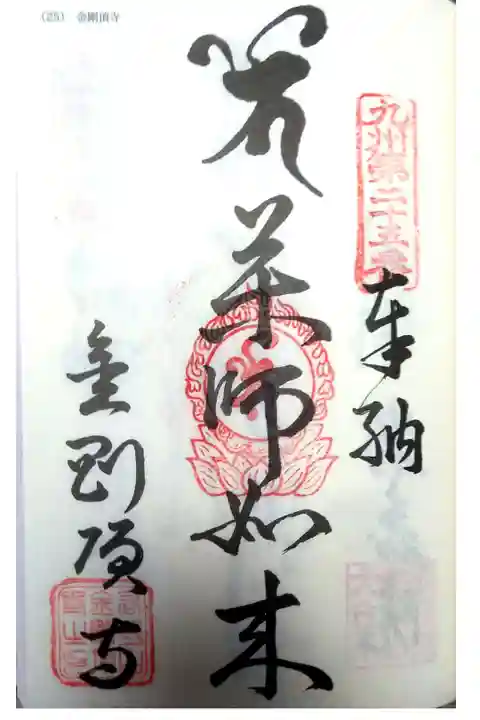 (25) 金剛頂寺
九州第二十五番
奉納
薬師如来
金剛頂寺